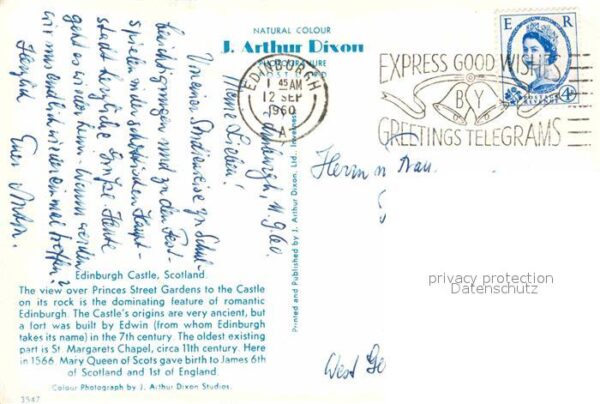 NATURAL COLOUR
J. Arthur Dixon
POST CARD
E R
POSTAGE REVENUE
4D
EDINBURGH
1 45 AM
12 SEP
1960
A
EXPRESS GOOD WISHES
BY
GREETINGS TELEGRAMS
Edinburgh, 11.9.60.
Meine Lieben!
Unserer Studienreise zu Schul-
besichtigungen und zu den Fest-
spielen in der schottischen Haupt-
stadt herzliche Grüße. Heute
geht es wieder heim. Wann werden
wir uns endlich wieder einmal treffen?
Herzlich Euer
Herrn u. Frau
West Ge
privacy protection
Datenschutz
Printed and Published by J. Arthur Dixon Ltd.
Edinburgh Castle, Scotland.
The view over Princes Street Gardens to the Castle
on its rock is the dominating feature of romantic
Edinburgh. The Castle's origins are very ancient, but
a fort was built by Edwin (from whom Edinburgh
takes its name) in the 7th century. The oldest existing
part is St. Margarets Chapel, circa 11th century. Here
in 1566 Mary Queen of Scots gave birth to James 6th
of Scotland and 1st of England.
Colour Photograph by J. Arthur Dixon Studios.
3547